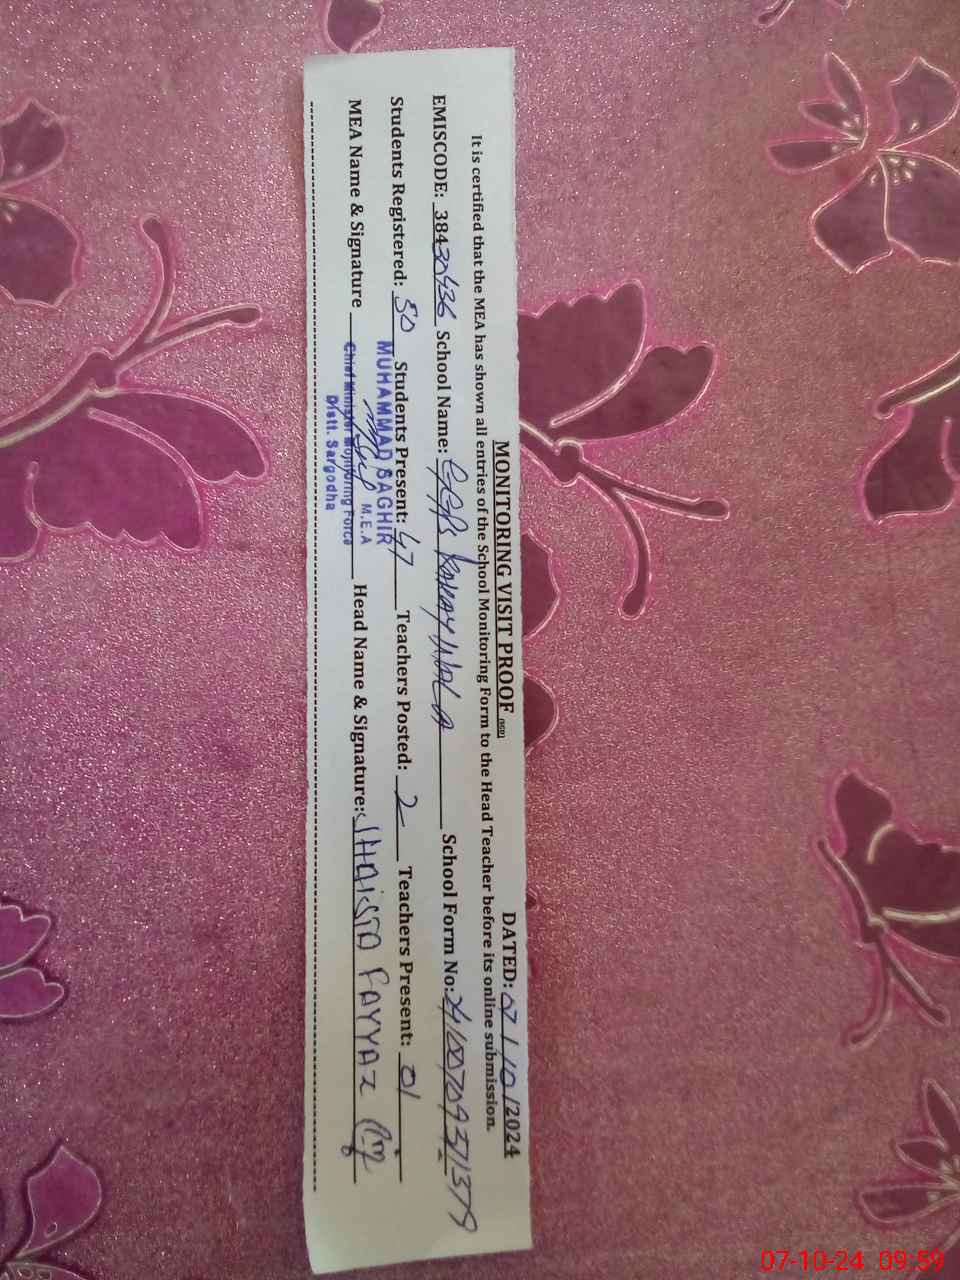 MONITORING VISIT PROOF (SGD) DATED: 07/10/2024
It is certified that the MEA has shown all entries of the School Monitoring Form to the Head Teacher before its online submission.
EMISCODE: 38430436 School Name: GGPS School Form No:
Students Registered: 50 Students Present: 47 Teachers Posted: 2 Teachers Present: 01
MEA Name & Signature Head Name & Signature: SHAISTA FAYYAZ
MUHAMMAD SAGHIR
M.E.A
Chief Minister Monitoring Force
Distt. Sargodha
07-10-24 09:59